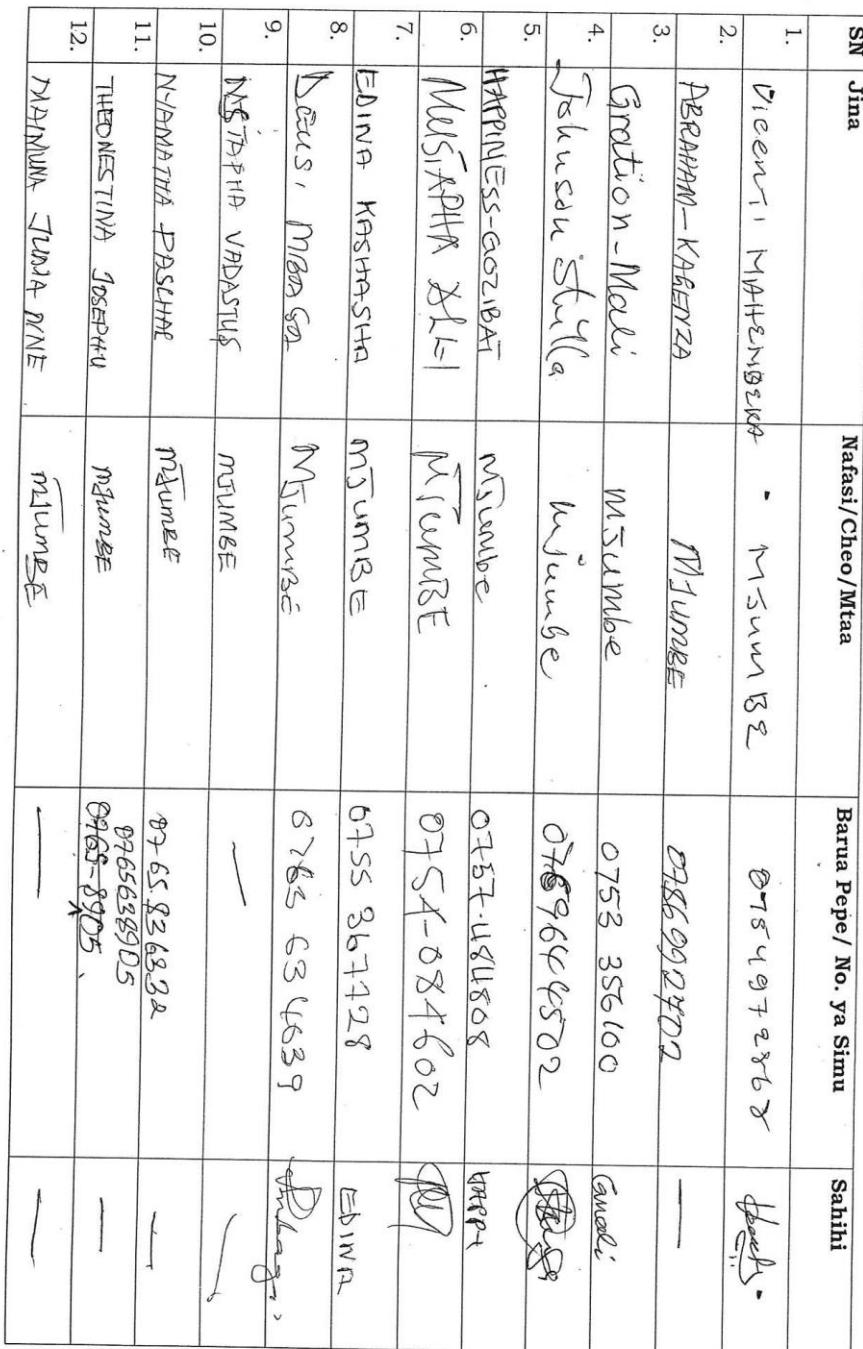 SN Jina Nafasi/Cheo/Mtaa Barua Pepe/ No. ya Simu Sahihi
1. Vicenti MAHEMBEKA - MJUMBE 0754972868
2. ABRAHAM-KAGENZA MJUMBE 0786992702 —
3. Gration-Mali MJumbe 0753 356100 Gmali
4. Johnson Mjumbe 0769644502
5. HAPPINESS-GOZIBAT MJumbe 0757-484808 HAPPY
6. MUSTAPHA ALLI MJUMBE 0754-084602
7. EDINA KASHASHA MJUMBE 0755 367728 EDINA
8. Deus, MBAGO MJumBE 0763 634639
9. MSTAPHA VADASTUS MJUMBE — —
10. NYAMATHA PASCHAL MJUMBE 0765836832 —
11. THEONESTINA JOSEPHU MJUMBE 0765638905 0765-8905 —
12. MAIMUNA JUMA MJUMBE — —